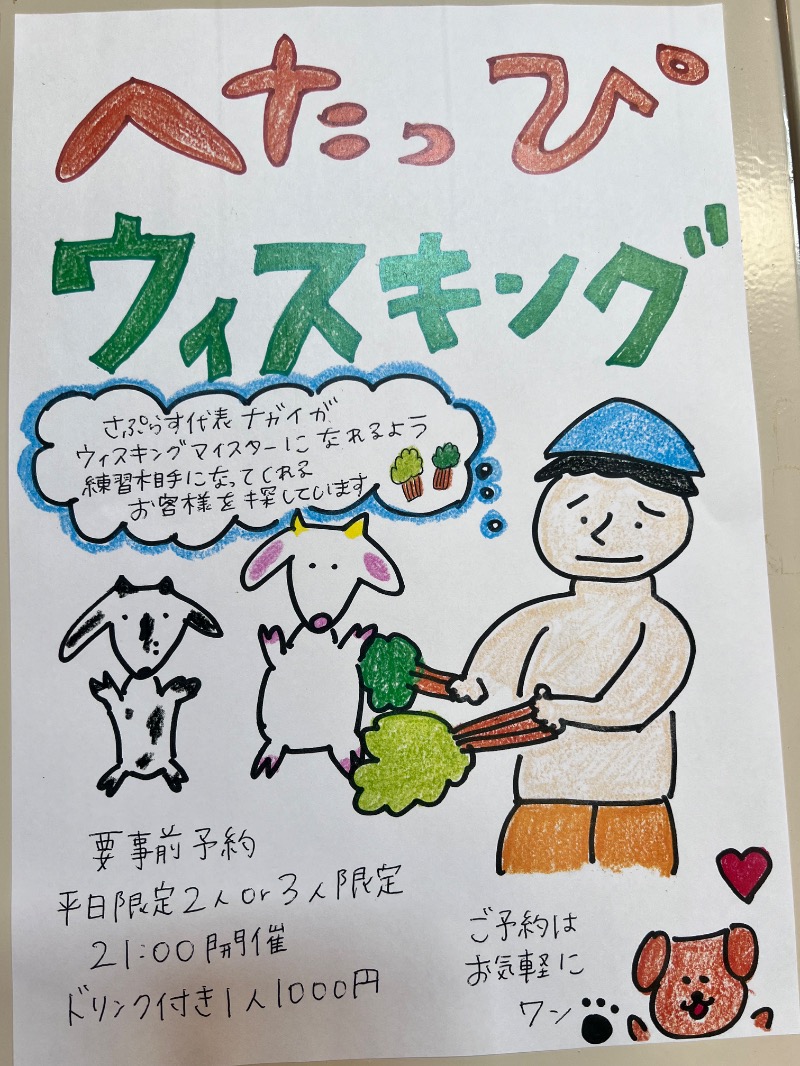 へたっぴ
ウィスキング
さぷらす代表 ナガイが
ウィスキングマイスターになれるよう
練習相手になってくれる
お客様を探しています
要事前予約
平日限定2人or3人限定
21:00開催
ドリンク付き1人1000円
ご予約は
お気軽に
ワン